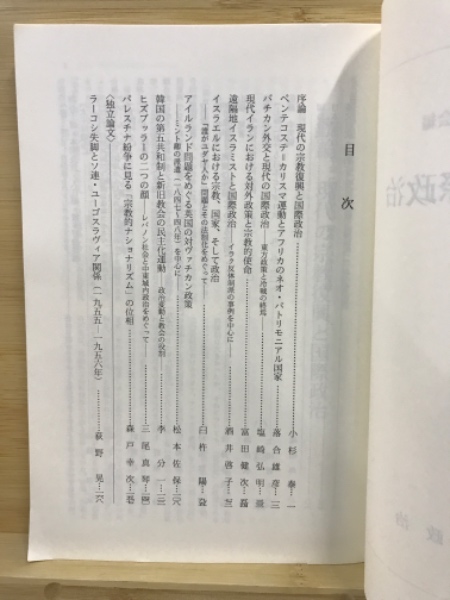 目次
序論 現代の宗教復興と国際政治……小杉 泰…一
ペンテコステ―カリスマ運動とアフリカのネオ・パトリモニアル国家……落合雄彦…
バチカン外交と現代の国際政治 ―東方政策と冷戦の終焉―……塩崎弘明…
現代イランにおける対外政策と宗教的使命……富田健次…
遠隔地イスラミストと国際政治 ―イラク反体制派の事例を中心に―……酒井啓子…
イスラエルにおける宗教、国家、そして政治
―「誰がユダヤ人か」問題とその法制化をめぐって―……臼杵 陽…
アイルランド問題をめぐる英国の対ヴァチカン政策
―ミント卿の派遣(一八四七～四八年)を中心に―……松本佐保…
韓国の第五共和制と新旧教会の民主化運動 ―政治変動と教会の役割―……李 分一…
ヒズブッラーの二つの顔 ―レバノン社会と中東域内政治をめぐって―……三尾真琴…
パレスチナ紛争に見る「宗教的ナショナリズム」の位相……森戸幸次…
〈独立論文〉
ラーコシ失脚とソ連・ユーゴスラヴィア関係(一九五五―一九五六年)……荻野 晃…
政治
政治